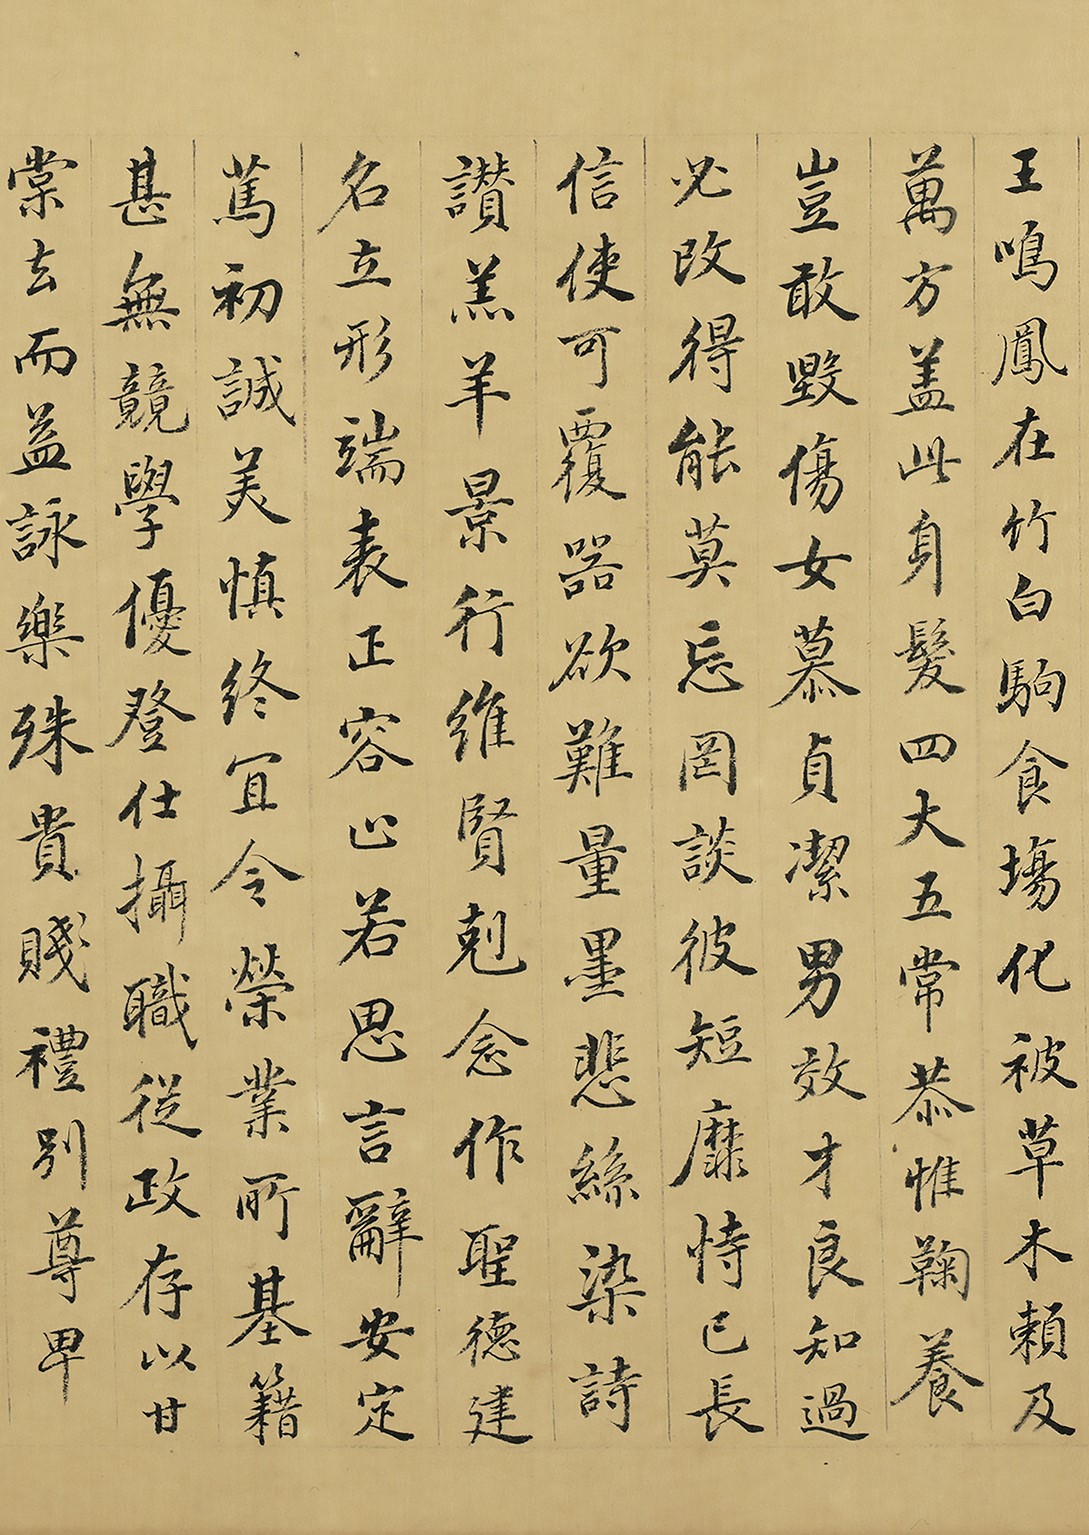 王鳴鳳在竹白駒食場化被草木賴及
萬方蓋此身髮四大五常恭惟鞠養
豈敢毀傷女慕貞潔男效才良知過
必改得能莫忘罔談彼短靡恃己長
信使可覆器欲難量墨悲絲染詩
讚羔羊景行維賢剋念作聖德建
名立形端表正容止若思言辭安定
篤初誠美慎終宜令榮業所基籍
甚無競學優登仕攝職從政存以甘
棠去而益詠樂殊貴賤禮別尊卑